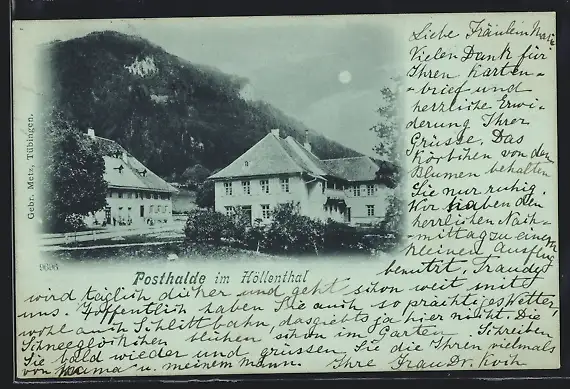 Liebe Fräulein Marie
Vielen Dank für
Ihren Karten-
brief und
herzliche Erwi-
derung Ihrer
Grüsse. Das
Körbchen von den
Blumen behalten
Sie nur ruhig.
Wir haben den
herrlichen Nach-
mittag zu einem
kleinen Ausflug
benützt, Traudy
wird täglich dicker und geht schon weit mit
uns. Hoffentlich haben Sie auch so prächtiges Wetter,
wohl auch Schlittbahn, das giebts ja hier nicht. Die
Schneeglöckchen blühen schon im Garten. Schreiben
Sie bald wieder und grüssen Sie die Ihren vielmals
von Mama u. meinem Mann. Ihre Frau Dr. Koch
Gebr. Metz, Tübingen.
Posthalde im Höllenthal